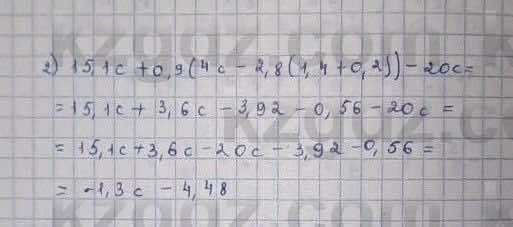 2) 15,1c + 0,9(4c - 2,8(1,4+0,2)) - 20c=
= 15,1c + 3,6c - 3,92 - 0,56 - 20c =
= 15,1c + 3,6c - 20c - 3,92 - 0,56 =
= -1,3c - 4,48